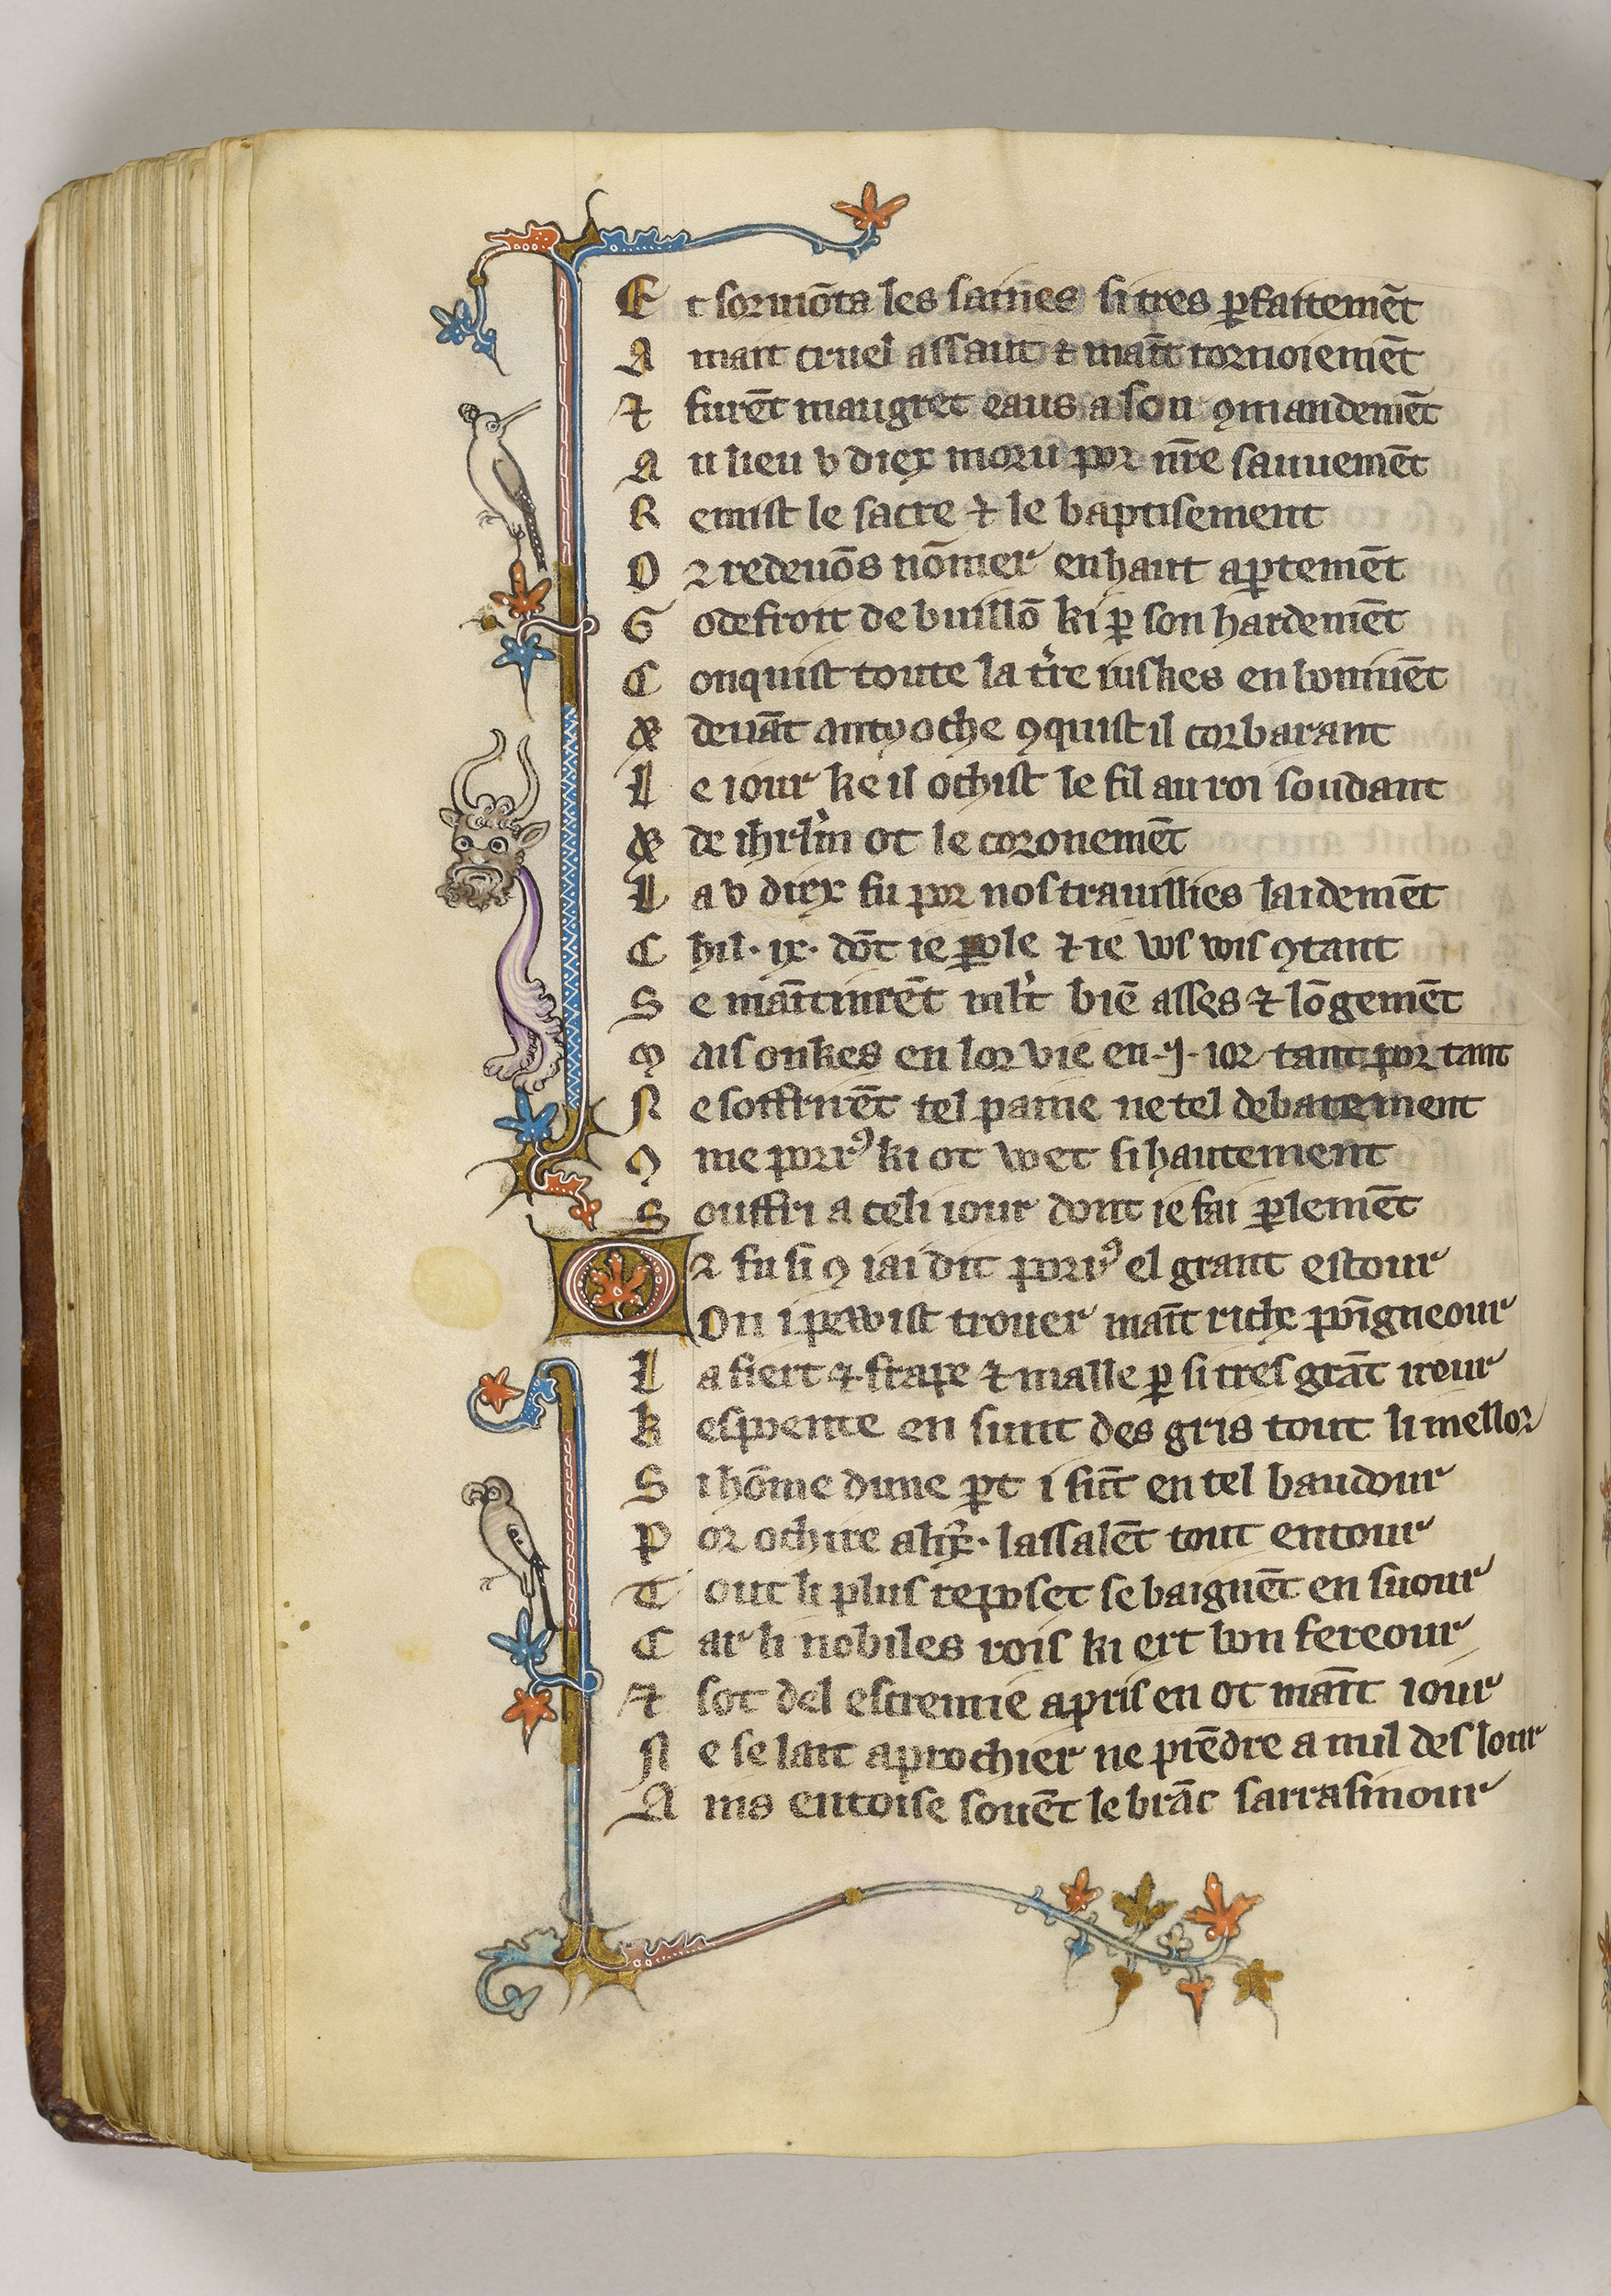 Et sormōta les saines si tres ꝑfaitemēt
A maīt cruel assaut ⁊ maīt tornoiemēt
⁊ furēt maugret eaus a son ꝯmandemēt
Au lieu v diex moru por nr̄e sauuemēt
Remist le sacre ⁊ le baptisement
Or redeuōs nōmer en haut aꝑtemēt
Godefroit de buillō ki ꝑ son hardemēt
Conquist toute la tr̄e iuskes en boniuēt
& deuāt antyoche ꝯquist il corbarant
Le iour ke il ochist le fil au roi soudant
& de ihrl̄m ot le coronemēt
La v diex fu por nos trauillies laidemēt
Chil · ix · dōt ie ꝑole ⁊ ie vos vois ꝯtant
Se maītinrēt mlt̄ biē asses ⁊ lōgemēt
Mais onkes en lor vie en · j · ior tant por tant
Ne soffrirēt tel paine ne tel debatement
ꝯme porrꝰ ki ot voet si hautement
Souffri a celi iour dont ie fai ꝑlemēt
Or fu si ꝯ iai dit porrꝰ el grant estour
On i pewist trouer maīt riche poīgneour
La fiert ⁊ frape ⁊ malle ꝑ si tres grāt irour
Kespoente en sunt des gris tout li mellor
Si hōme dune ꝑt i sūt en tel baudour
Por ochire alix̄ · lassalēt tout entour
Tout li plus reposet se baignēt en suour
Car li nobiles rois ki ert bon fereour
⁊ sot del escremie apris en ot maīt iour
Ne se lait aprochier ne prēdre a nul des lour
Ains entoise souēt le brāc sarrasinour